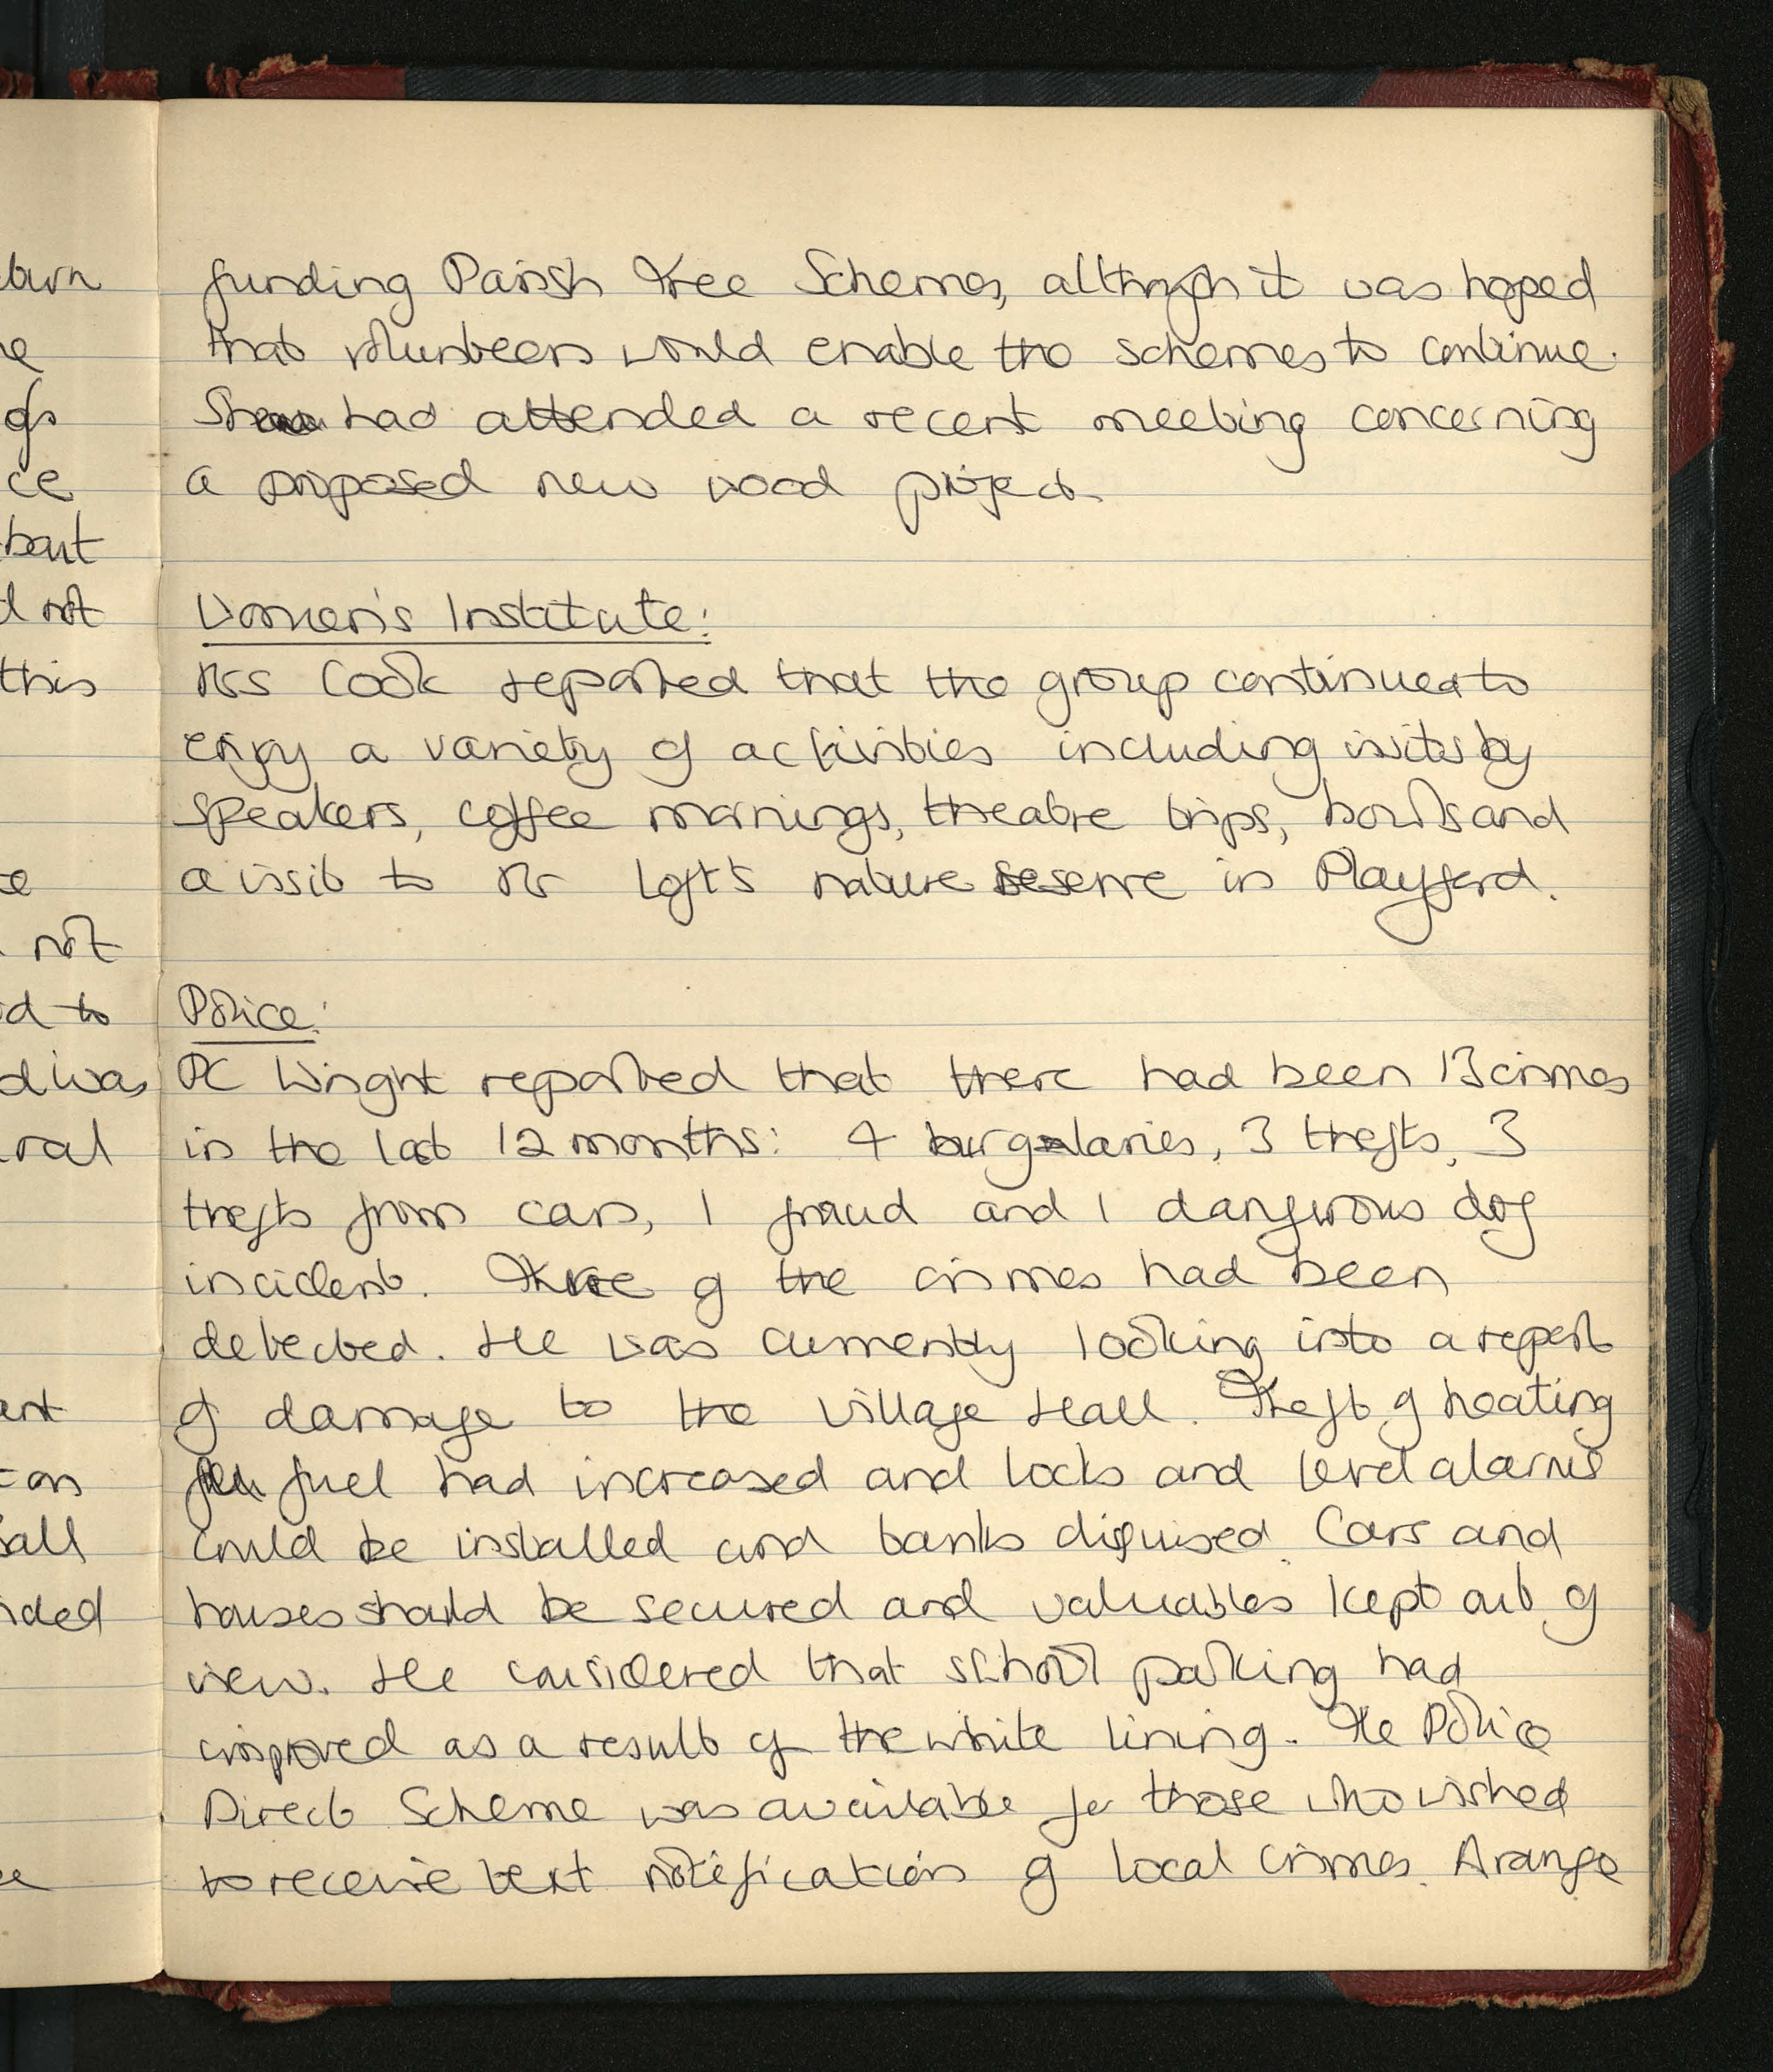 funding Parish Tree Schemes, although it was hoped
that volunteers would enable the schemes to continue.
She had attended a recent meeting concerning
a proposed new wood project.
Women's Institute:
Mrs Cook reported that the group continued to
enjoy a variety of activities including visits by
speakers, coffee mornings, theatre trips, bowls and
a visit to Mr Loft's nature reserve in Playford.
Police:
PC Wright reported that there had been 13 crimes
in the last 12 months: 4 burglaries, 3 thefts, 3
thefts from cars, 1 fraud and 1 dangerous dog
incident. Three of the crimes had been
detected. He was currently looking into a report
of damage to the Village Hall. Theft of heating
fuel had increased and locks and level alarms
could be installed and tanks disguised. Cars and
houses should be secured and valuables kept out of
view. He considered that school parking had
improved as a result of the white lining. The Police
Direct Scheme was available for those who wished
to receive text notification of local crimes. A range